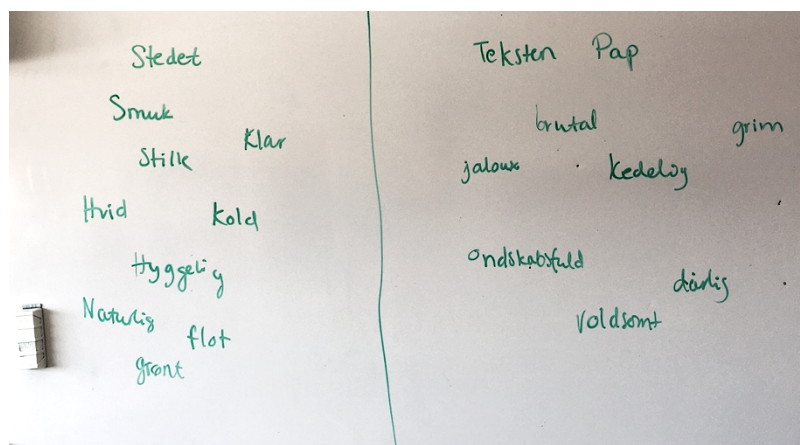 Stedet
Smuk
Klar
Stille
Hvid
Kold
Hyggelig
Naturlig
flot
grønt
Teksten Pap
brutal
grim
jaloux
kedelig
ondskabsfuld
dårlig
voldsomt